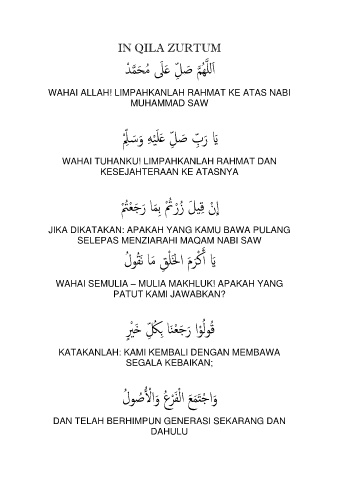 IN QILA ZURTUM
اَللّٰهُمَّ صَلِّ عَلَى مُحَمَّدْ
WAHAI ALLAH! LIMPAHKANLAH RAHMAT KE ATAS NABI
MUHAMMAD SAW
يَا رَبِّ صَلِّ عَلَيْهِ وَسَلِّمْ
WAHAI TUHANKU! LIMPAHKANLAH RAHMAT DAN
KESEJAHTERAAN KE ATASNYA
إِنْ قِيلَ زُرْتُمْ بِمَا رَجَعْتُمْ
JIKA DIKATAKAN: APAKAH YANG KAMU BAWA PULANG
SELEPAS MENZIARAHI MAQAM NABI SAW
يَا أَكْرَمَ الْخَلْقِ مَا نَقُولُ
WAHAI SEMULIA – MULIA MAKHLUK! APAKAH YANG
PATUT KAMI JAWABKAN?
قُولُوْا رَجَعْنَا بِكُلِّ خَيْرٍ
KATAKANLAH: KAMI KEMBALI DENGAN MEMBAWA
SEGALA KEBAIKAN;
وَاجْتَمَعَ الْفَرْعُ وَالْأُصُولُ
DAN TELAH BERHIMPUN GENERASI SEKARANG DAN
DAHULU